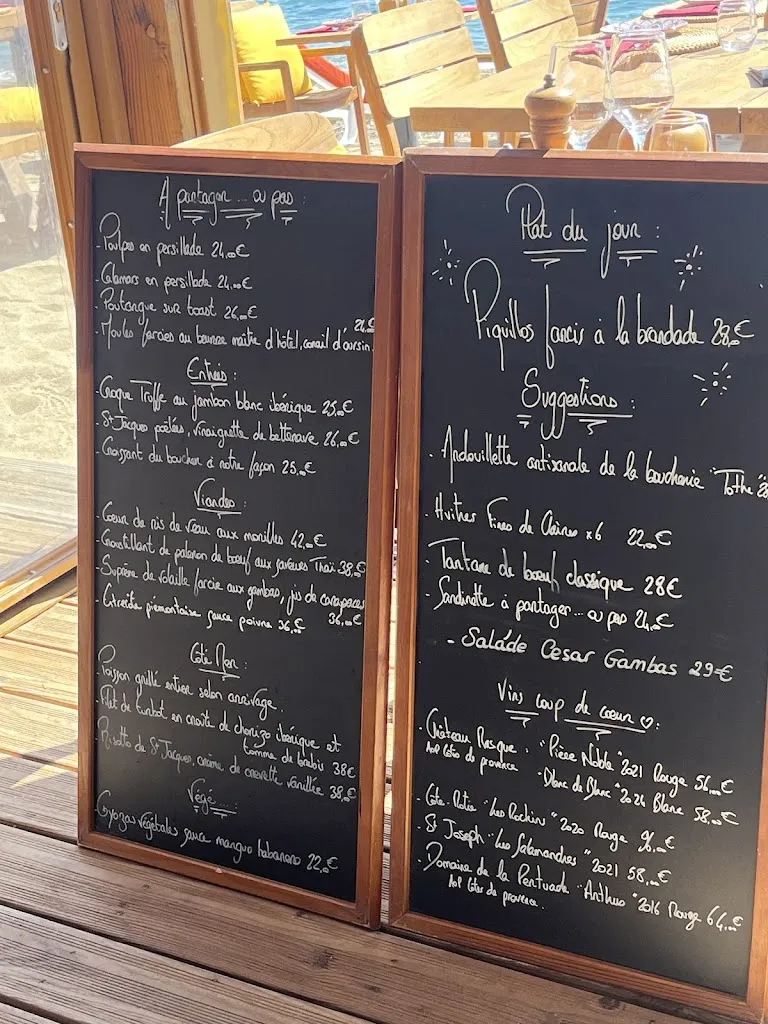 A partager... ou pas :
- Poulpes en persillade 24,00€
- Calamars en persillade 24,00€
- Poutargue sur toast 26,00€
- Moules farcies au beurre maitre d'hôtel, corail d'oursin. 26€
Entrées :
- Croque Truffe au jambon blanc ibérique 25,00€
- St Jacques poêlées, vinaigrette de betterave 26,00€
- Croissant du boucher à notre façon 25,00€
Viandes :
- Coeur de ris de veau aux morilles 42,00€
- Croustillant de paleron de boeuf aux saveurs Thaï 38,00€
- Suprême de volaille farcie aux gambas, jus de carapaces 36,00€
- piémontaise sauce poivre 36,00€
Coté Mer :
- Poisson grillé entier selon arrivage.
- Filet de turbot en croute de chorizo ibérique et
tomme de brebis 38€
- Risotto de St Jacques, crème de crevette vanillée 38,00€
Végé...
- Gyozas végétales sauce mangue habanero 22,00€
Plat du jour :
Piquillos farcis à la brandade 28,00€
Suggestions :
- Andouillette artisanale de la boucherie "Tothe" 28
- Huitres Fines de Claires x6 22,00€
- Tartare de boeuf classique 28€
- Sardinette à partager... ou pas 24,00€
- Salade Cesar Gambas 29€
Vins coup de coeur ♡ :
- Château Rasque : "Pièce Noble" 2021 Rouge 56,00€
AOP Côtes de provence - "Blanc de Blanc" 2024 Blanc 58,00€
- Côte-Rotie "Les Rochins" 2020 Rouge 96,00€
- St Joseph "Les Salamandres" 2021 58,00€
- Domaine de la Pertuade "Arthus" 2016 Rouge 64,00€
AOP Côtes de provence.